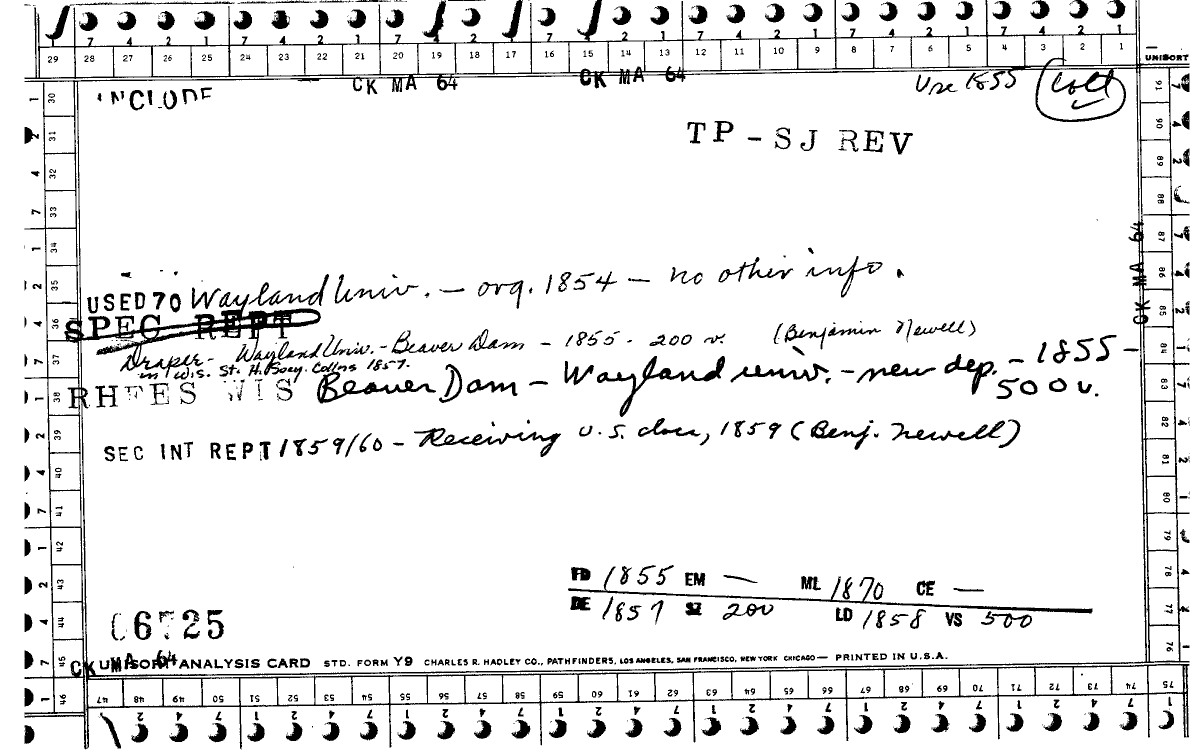 7 4 2 1 7 4 2 1 7 4 2 1 7 4 2 1 7 4 2 1 7 4 2 1 7 4 2 1
29 28 27 26 25 24 23 22 21 20 19 18 17 16 15 14 13 12 11 10 9 8 7 6 5 4 3 2 1
UNISORT
CK MA 64 CK MA 64 Use 1855 coll
INCLUDE
TP - SJ REV
CK MA 64
USED 70 Wayland Univ. — org. 1854 — no other info.
SPEC REPT
Draper - Wayland Univ. - Beaver Dam - 1855 - 200 v. (Benjamin Newell)
in Wis. St. H. Socy. Collns 1857.
RHEES WIS Beaver Dam - Wayland univ. - new dep. - 1855 -
500 v.
SEC INT REPT 1859/60 - Receiving U.S. docs, 1859 (Benj. Newell)
FD 1855 EM — ML 1870 CE —
DE 1857 SZ 200 LD 1858 VS 500
06725
CK MA 64
UNISORT ANALYSIS CARD STD. FORM Y9 CHARLES R. HADLEY CO., PATHFINDERS, LOS ANGELES, SAN FRANCISCO, NEW YORK CHICAGO — PRINTED IN U.S.A.
47 48 49 50 51 52 53 54 55 56 57 58 59 60 61 62 63 64 65 66 67 68 69 70 71 72 73 74 75